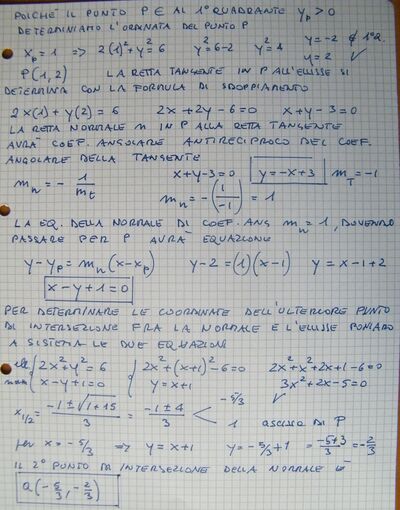 POICHÉ IL PUNTO P ∈ AL 1° QUADRANTE y_p > 0
DETERMINIAMO L'ORDINATA DEL PUNTO P
x_p = 1 => 2(1)² + y² = 6 y² = 6-2 y² = 4 y = -2 ∉ 1°Q.
y = 2 ✓
P(1,2) LA RETTA TANGENTE IN P ALL'ELLISSE SI
DETERMINA CON LA FORMULA DI SDOPPIAMENTO
2x(1) + y(2) = 6 2x + 2y - 6 = 0 x + y - 3 = 0
LA RETTA NORMALE n IN P ALLA RETTA TANGENTE
AVRÀ COEF. ANGOLARE ANTIRECIPROCO DEL COEF.
ANGOLARE DELLA TANGENTE
m_n = - 1/m_t x + y - 3 = 0 y = -x + 3 m_T = -1
m_n = -(1/-1) = 1
LA EQ. DELLA NORMALE DI COEF. ANG m_n = 1, DOVENDO
PASSARE PER P AVRÀ EQUAZIONE
y - y_p = m_n (x - x_p) y - 2 = (1)(x - 1) y = x - 1 + 2
x - y + 1 = 0
PER DETERMINARE LE COORDINATE DELL'ULTERIORE PUNTO
DI INTERSEZIONE FRA LA NORMALE E L'ELLISSE PONIAMO
A SISTEMA LE DUE EQUAZIONI
{ 2x² + y² = 6 { 2x² + (x+1)² - 6 = 0 2x² + x² + 2x + 1 - 6 = 0
x - y + 1 = 0 y = x + 1 3x² + 2x - 5 = 0
x_1/2 = (-1 ± √(1+15))/3 = (-1 ± 4)/3 < -5/3 ✓
1 ASCISSA DI P
per x = -5/3 => y = x + 1 y = -5/3 + 1 = (-5+3)/3 = -2/3
IL 2° PUNTO DI INTERSEZIONE DELLA NORMALE È
Q(-5/3, -2/3)